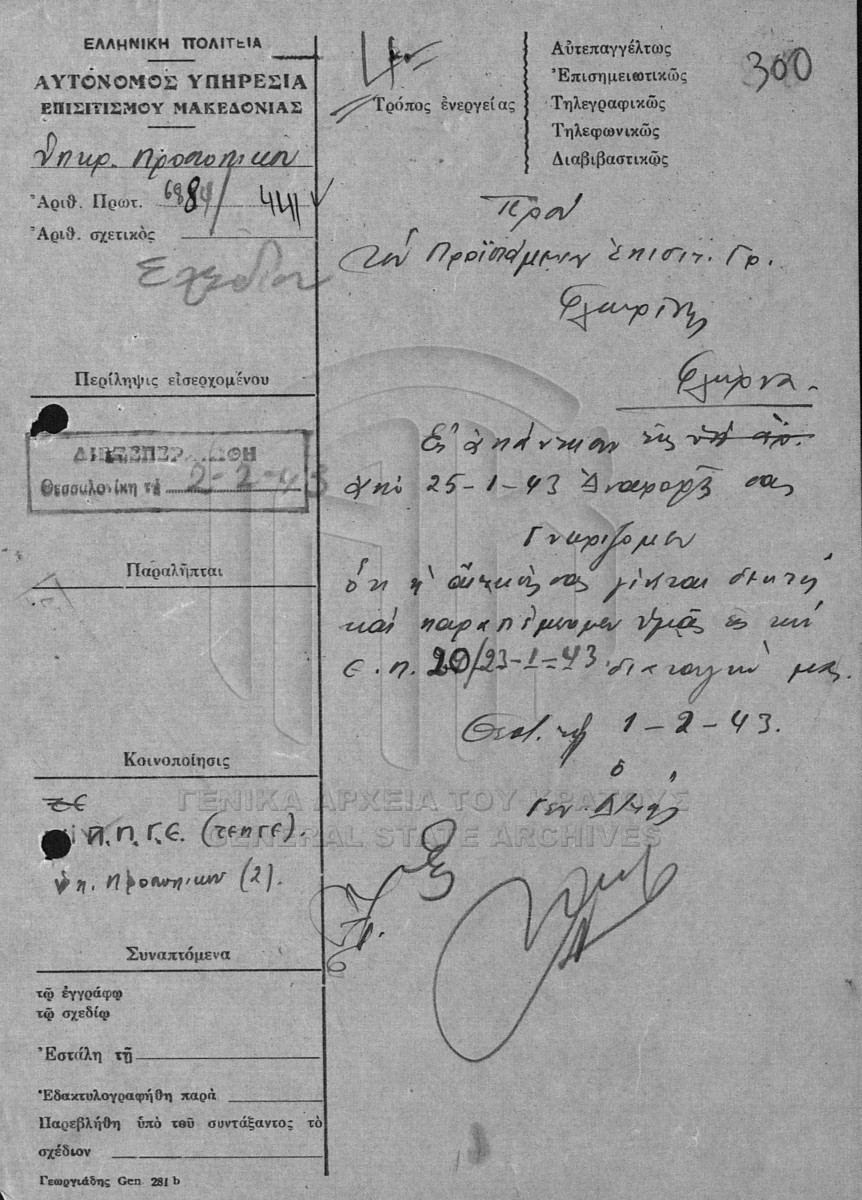 ΕΛΛΗΝΙΚΗ ΠΟΛΙΤΕΙΑ
ΑΥΤΟΝΟΜΟΣ ΥΠΗΡΕΣΙΑ
ΕΠΙΣΙΤΙΣΜΟΥ ΜΑΚΕΔΟΝΙΑΣ
Ὑπηρ. Προσωπικοῦ
Ἀριθ. Πρωτ. 6884/
Ἀριθ. σχετικὸς
Σχέδιον
Περίληψις εἰσερχομένου
ΔΙΕΞΕΠΕΡΑΙΩΘΗ
Θεσσαλονίκη τῇ 2-2-43
Παραλῆπται
Κοινοποίησις
Π.Π.Γ.Ε. (ΤΕΠΓΕ).
Ὑπ. Προσωπικοῦ (2).
Συναπτόμενα
τῷ ἐγγράφῳ
τῷ σχεδίῳ
Ἐστάλη τῇ
Ἐδακτυλογραφήθη παρὰ
Παρεβλήθη ὑπὸ τοῦ συντάξαντος τὸ
σχέδιον
Γεωργιάδης Gen 281 b
Τρόπος ἐνεργείας
Αὐτεπαγγέλτως
Ἐπισημειωτικῶς
Τηλεγραφικῶς
Τηλεφωνικῶς
Διαβιβαστικῶς
300
Πρὸς
τὸν Προϊστάμενον Ἐπισιτ. Γρ.
Φλωρίνης
Φλώρινα.
Εἰς ἀπάντησιν τῆς ὑπ' ἀρ.
ἀπὸ 25-1-43 Ἀναφορᾶς σας
Γνωρίζομεν
ὅτι ἡ αἴτησίς σας γίνεται δεκτὴ
καὶ παραπέμπομεν ὑμᾶς εἰς τὴν
Ε.Π. 20/23-1-43 διαταγήν μας.
Θεσ. τῇ 1-2-43.
Ὁ
Γεν. Δ/τής
ΓΕΝΙΚΑ ΑΡΧΕΙΑ ΤΟΥ ΚΡΑΤΟΥΣ
GENERAL STATE ARCHIVES